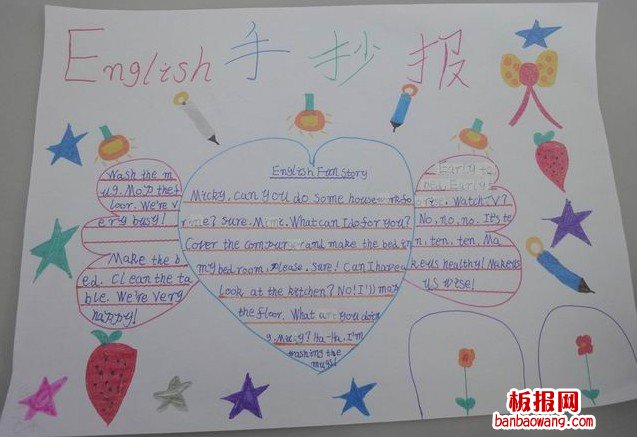 English 手抄报
Wash the m
ug. Mop the f
loor. We're v
ery busy!
Make the b
ed. Clean the ta
ble. We're very
happy!
English Fun Story
Micky, can you do some housework fo
r me? Sure. Mimi. What can I do for you?
Cover the computer and make the bed in
my bedroom, please. Sure! Can I have a
Look at the kitchen? No! I'll mop
the floor. What are you doin
g. Micky? Ha-Ha. I'm
washing the
mugs!
Early to
bed. Early
to rise. Watch TV?
No, no, no. It's te
n, ten, ten. Ma
kes us healthy! Makes
us wise!
板报网
banbaowang.com